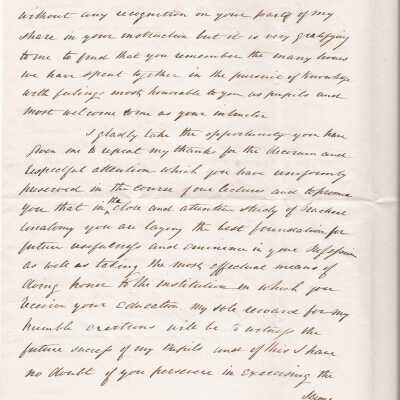 without any recognition on your part of my
share in your instruction but it is very gratifying
to me to find that you remember the many hours
we have spent together in the pursuit of knowledge
with feelings most honorable to you as pupils and
most welcome to me as your instructor
I gladly take the opportunity you have
given me to repeat my thanks for the decorum and
respectful attention which you have uniformly
preserved in the course of our lectures and to promise
you that in the close and attentive study of
anatomy you are laying the best foundation for
future usefulness and eminence in your Profession
as well as taking the most effectual means of
doing honor to the institution in which you
receive your education my sole reward for my
humble exertions will be to witness the
future success of my Pupils and of this I have
no doubt if you persevere in exercising the
same